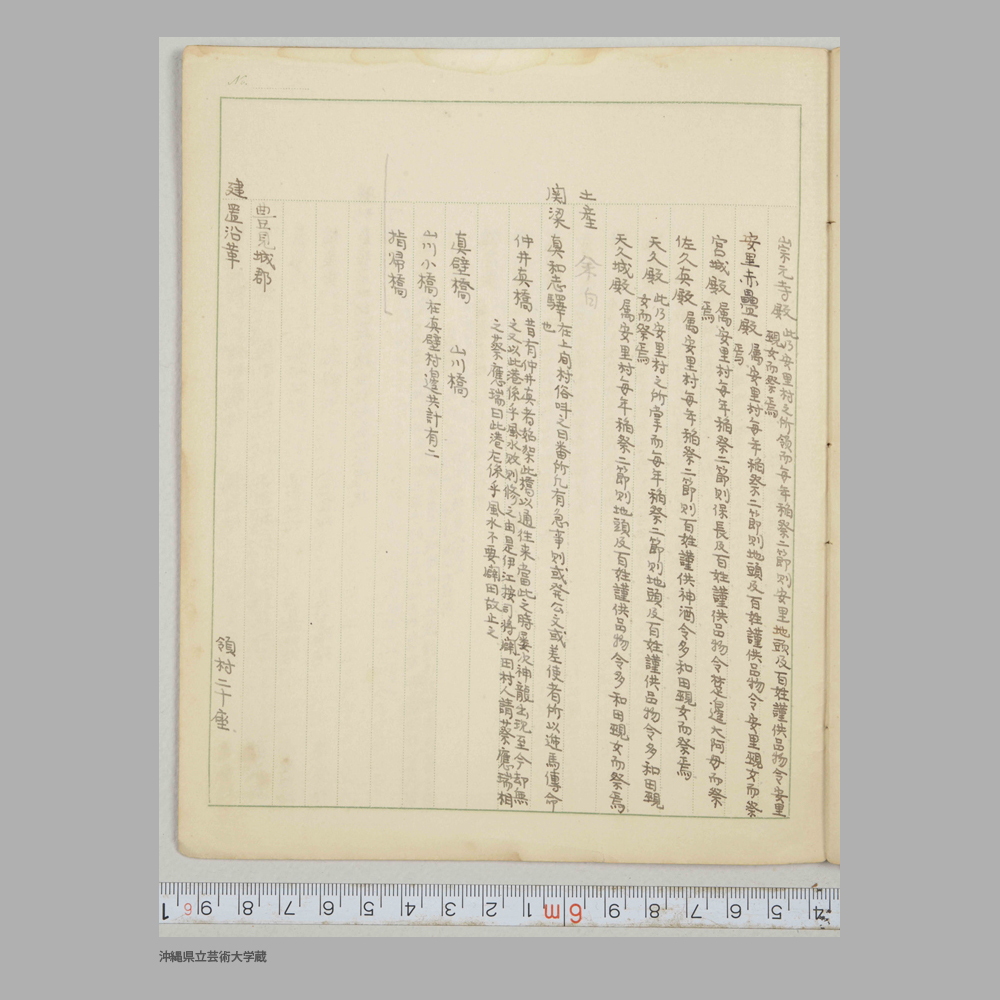 崇元寺殿 此乃安里村之所領而毎年稲祭二節則安里地頭及百姓謹供品物令安里
覡女而祭焉
安里赤罍殿 属安里村毎年稲祭二節則地頭及百姓謹供品物令安里覡女而祭
焉
宮城殿 属安里村毎年稲祭二節則保長及百姓謹供品物令楚邊大阿母而祭
焉
佐久真殿 属安里村毎年稲祭二節則百姓謹供神酒令多和田覡女而祭焉
天久殿 此乃安里村之所掌而毎年稲祭二節則地頭及百姓謹供品物令多和田覡
女而祭焉
天久城殿 属安里村毎年稲祭二節則地頭及百姓謹供品物令多和田覡女而祭焉
土産 余白
関梁 真和志驛 在上間村俗叫之曰番所凡有急事則或発公文或差使者所以逓馬傳命
也
仲井真橋 昔有仲井真者始架此橋以通往来當此之時屡次神龍出現至今却無
之又以此港係乎風水敗則修之由是伊江按司将廟田村人請蔡應瑞相
之蔡應瑞曰此港尤係乎風水不要廟田故止之
真壁橋 山川橋
山川小橋 在真壁村邊共計有二
指帰橋
豊見城郡
建置沿革 領村二十座
No.
1 6 9 8 7 6 5 4 3 2 1 6m 9 8 7 6 5 4
沖縄県立芸術大学蔵